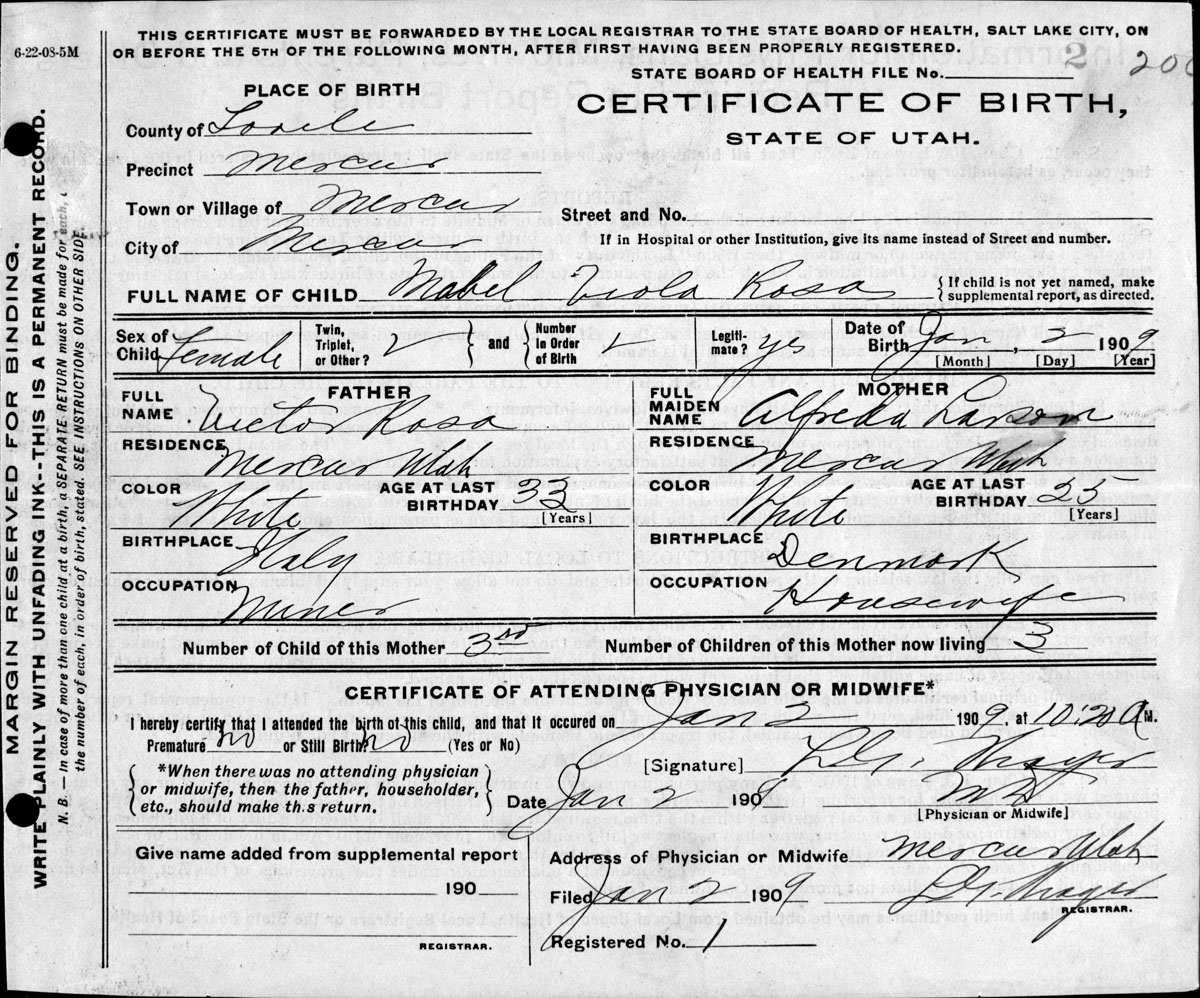 6-22-08-5M
THIS CERTIFICATE MUST BE FORWARDED BY THE LOCAL REGISTRAR TO THE STATE BOARD OF HEALTH, SALT LAKE CITY, ON
OR BEFORE THE 5TH OF THE FOLLOWING MONTH, AFTER FIRST HAVING BEEN PROPERLY REGISTERED.
2 200
STATE BOARD OF HEALTH FILE No.
PLACE OF BIRTH
CERTIFICATE OF BIRTH,
STATE OF UTAH.
County of Tooele
Precinct Mercur
Town or Village of Mercur
Street and No.
City of Mercur
If in Hospital or other Institution, give its name instead of Street and number.
FULL NAME OF CHILD Mabel Viola Rosa { If child is not yet named, make supplemental report, as directed.
Sex of Child Female Twin, Triplet, or Other? } and { Number in Order of Birth Legiti-mate? yes Date of Birth Jan, 2 1909
[Month] [Day] [Year]
FATHER
FULL NAME Victor Rosa
RESIDENCE Mercur Utah
COLOR White AGE AT LAST BIRTHDAY 33
[Years]
BIRTHPLACE Italy
OCCUPATION Miner
MOTHER
FULL MAIDEN NAME Alfreda Larson
RESIDENCE Mercur Utah
COLOR White AGE AT LAST BIRTHDAY 25
[Years]
BIRTHPLACE Denmark
OCCUPATION Housewife
Number of Child of this Mother 3rd Number of Children of this Mother now living 3
CERTIFICATE OF ATTENDING PHYSICIAN OR MIDWIFE*
I hereby certify that I attended the birth of this child, and that it occured on Jan 2 1909, at 10:20 A M.
Premature no or Still Birth? no (Yes or No)
[Signature]
{ *When there was no attending physician
or midwife, then the father, householder,
etc., should make this return. }
Date Jan 2 1909 MD
[Physician or Midwife]
Give name added from supplemental report
190
REGISTRAR.
Address of Physician or Midwife Mercur Utah
Filed Jan 2 1909
REGISTRAR.
Registered No. 1
MARGIN RESERVED FOR BINDING.
WRITE PLAINLY WITH UNFADING INK--THIS IS A PERMANENT RECORD.
N. B. — In case of more than one child at a birth, a SEPARATE RETURN must be made for each,
the number of each, in order of birth, stated. SEE INSTRUCTIONS ON OTHER SIDE.